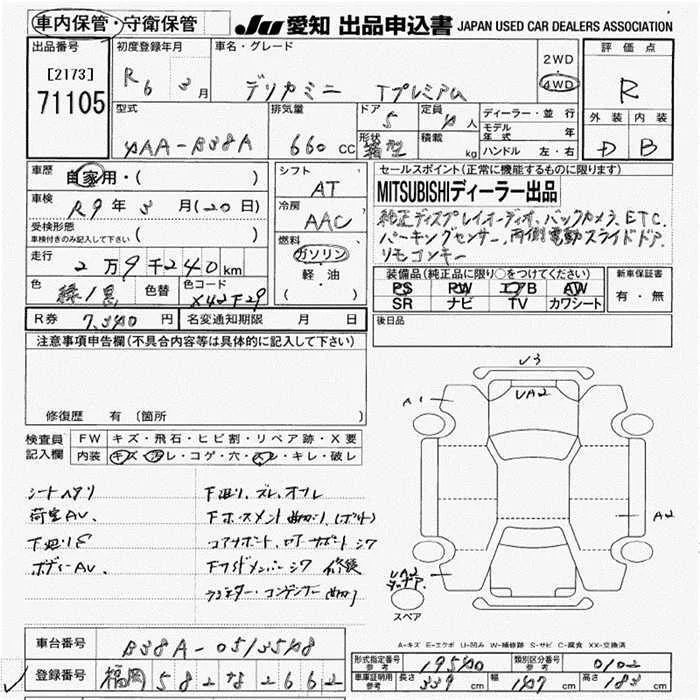 車内保管・守衛保管 JU 愛知 出品申込書 JAPAN USED CAR DEALERS ASSOCIATION
出品番号 初度登録年月 車名・グレード 2WD 評価点
[2173] R6 3月 デリカミニ Tプレミアム 4WD R
71105
型式 排気量 ドア 5 定員 4人 ディーラー・並行 外装 内装
4AA-B38A 660cc 形状 箱型 積載 kg モデル年式 年 D B
ハンドル 左・右
車歴 自家用・( ) シフト AT セールスポイント(正常に機能するものに限ります)
車検 R9年3月(20日) 冷房 AAC MITSUBISHIディーラー出品
受検形態 車検付きのみ記入して下さい ( ) 燃料 純正ディスプレイオーディオ、バックカメラ、ETC、
走行 2万9千240km ガソリン パーキングセンサー、両側電動スライドドア、
軽・油 リモコンキー
( )
色 緑/黒 色替 色コード X42F29 装備品(純正品に限り○をつけてください) 新車保証書
PS PW エアB AW 有・無
SR ナビ TV カワシート
R券 7,340円 名変通知期限 月 日 後日品
注意事項申告欄(不具合内容等は具体的に記入して下さい)
修復歴 有 (箇所 )
検査員記入欄 FW キズ・飛石・ヒビ割・リペア跡・X要
内装 キズ・汚レ・コゲ・穴・スレ・キレ・破レ
シートヘタリ 下廻リ、ズレ、オフレ
荷室AV、
下廻りE コアサポート、ロアサポートシワ
ボディーAV、 修錆
ラジエター・コンデンサー曲り
√3
UA2
A1
A2
UA2
スペア
A-キズ E-エクボ U-凹み W-補修跡 S-サビ C-腐食 XX-交換済
車台番号 B38A-0513548
登録番号 福岡 582 な 2662
形式指定番号 参考 19540 類別区分番号 参考 0102
車庫証明用 参考 長さ 339cm 幅 147cm 高さ 183cm